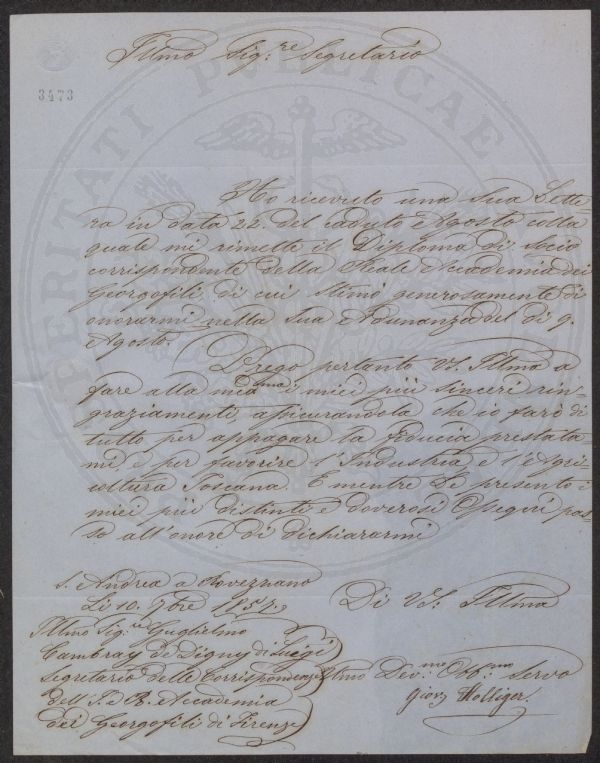 Illmo Sig:re Segretario
3473
Ho ricevuto una Sua Lette-
ra in data 22. del caduto Agosto colla
quale mi rimette il Diploma di Socio
corrispondente della Reale Accademia dei
Georgofili, di cui stimò generosamente di
onorarmi nella Sua Adunanza del dì 9.
Agosto.
Prego pertanto VS. Illma a
fare alla med.ma i miei più sinceri rin-
graziamenti, assicurandola che io farò di
tutto per appagare la fiducia prestata-
mi, e per favorire l'Industria e l'Agri-
coltura Toscana. E mentre Le presento i
miei più distinti e doverosi Ossequi pas-
so all'onore di dichiararmi
S. Andrea a Rovezzano
Li 10. 7bre 1857.
Di VS. Illma
Illmo Sig:re Guglielmo
Cambray De Digny di Luigi
Segretario delle Corrispondenze
dell'I. e R. Accademia
dei Georgofili di Firenze
Umo Dev:mo Obb:mo Servo
Giov. Holliger.
PUBLICAE